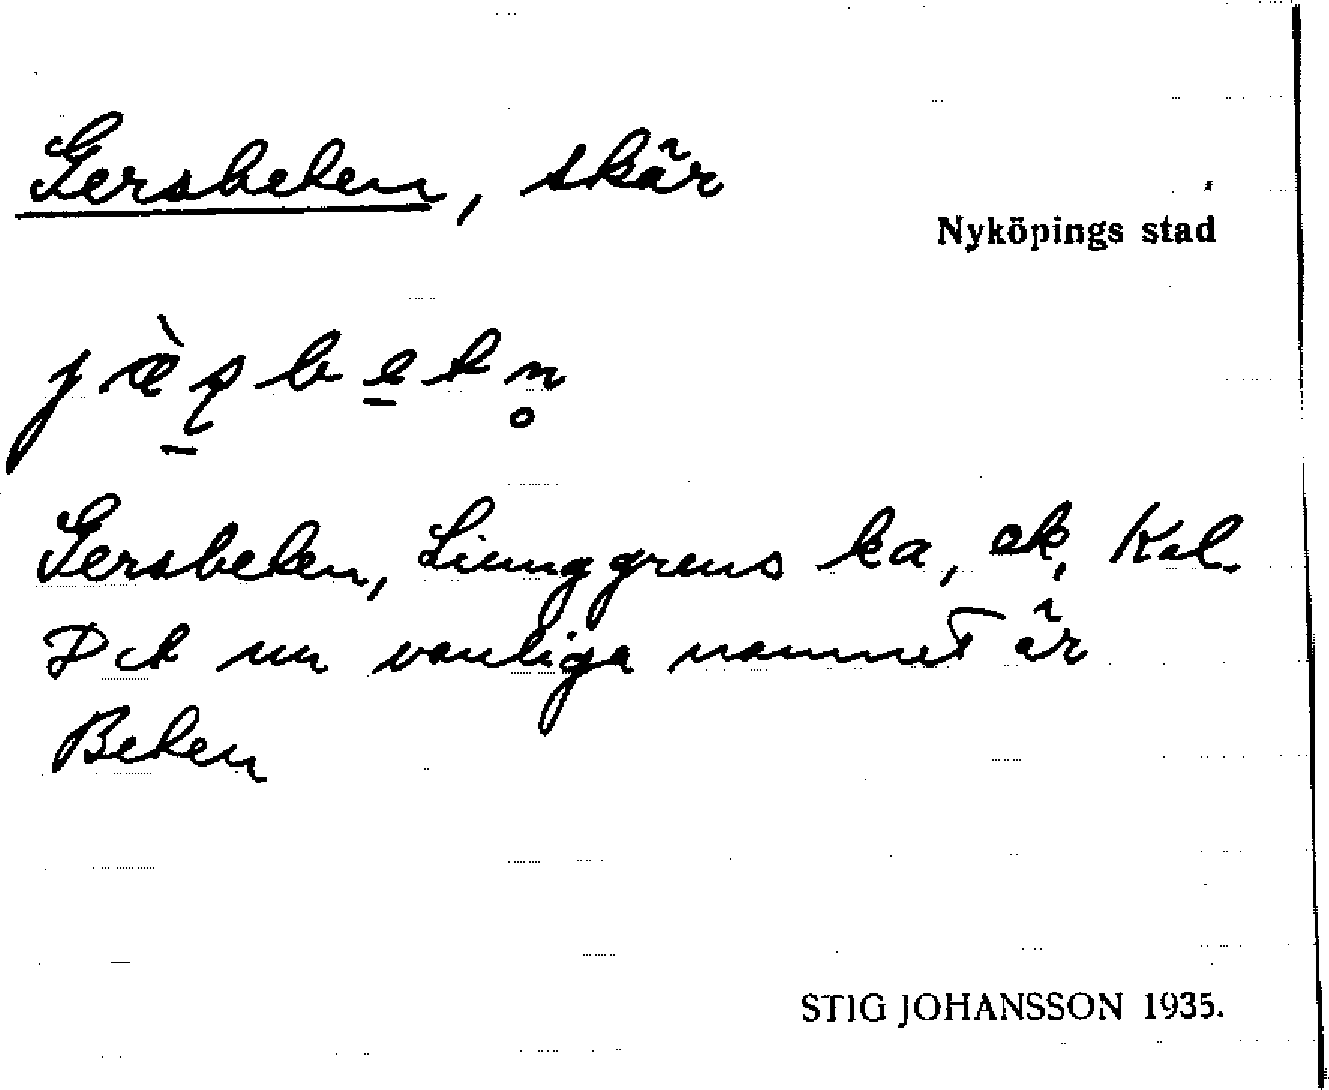 Gersbeten, skär
Nyköpings stad
jæ̀ʂbe̱tn̥
Gersbeten, Liunggrens ka, ek, Kal.
Det nu vanliga namnet är
Beten
STIG JOHANSSON 1935.